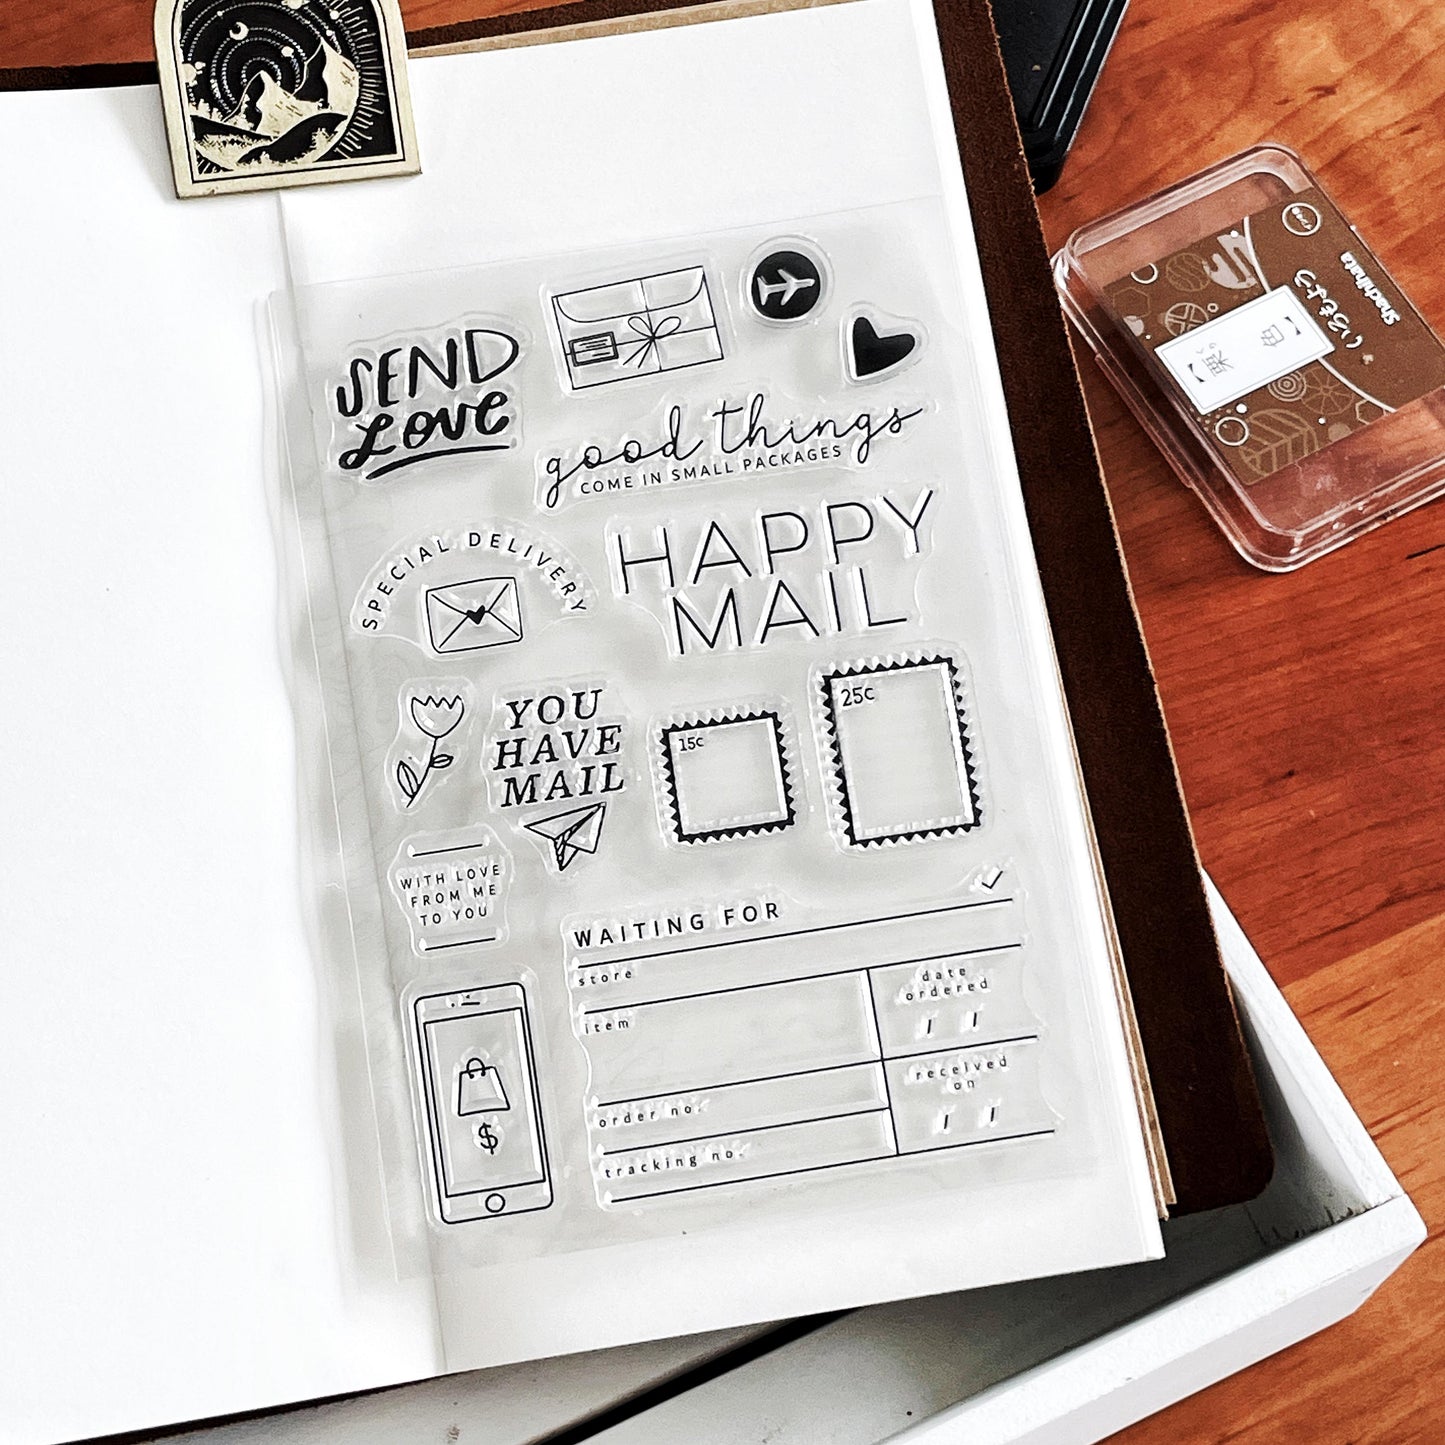 SEND
LOVE
good things
COME IN SMALL PACKAGES
SPECIAL DELIVERY
HAPPY
MAIL
YOU
HAVE
MAIL
15c
25c
WITH LOVE
FROM ME
TO YOU
WAITING FOR
store
item
order no.
tracking no.
date
ordered
/ /
received
on
/ /
$
Shachihata
いろもよう
【栗色】